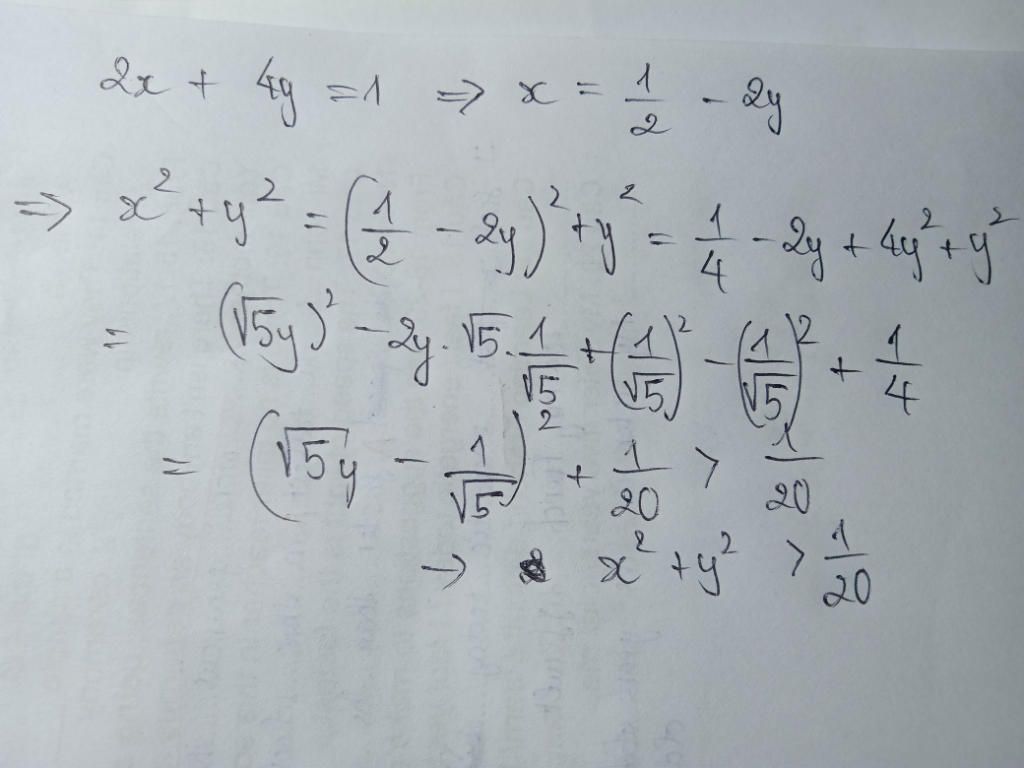 2x + 4y = 1 ⇒ x = 1/2 - 2y
⇒ x² + y² = (1/2 - 2y)² + y² = 1/4 - 2y + 4y² + y²
= (√5y)² - 2y . √5 . 1/√5 + (1/√5)² - (1/√5)² + 1/4
= (√5y - 1/√5)² + 1/20 > 1/20
→ x² + y² > 1/20